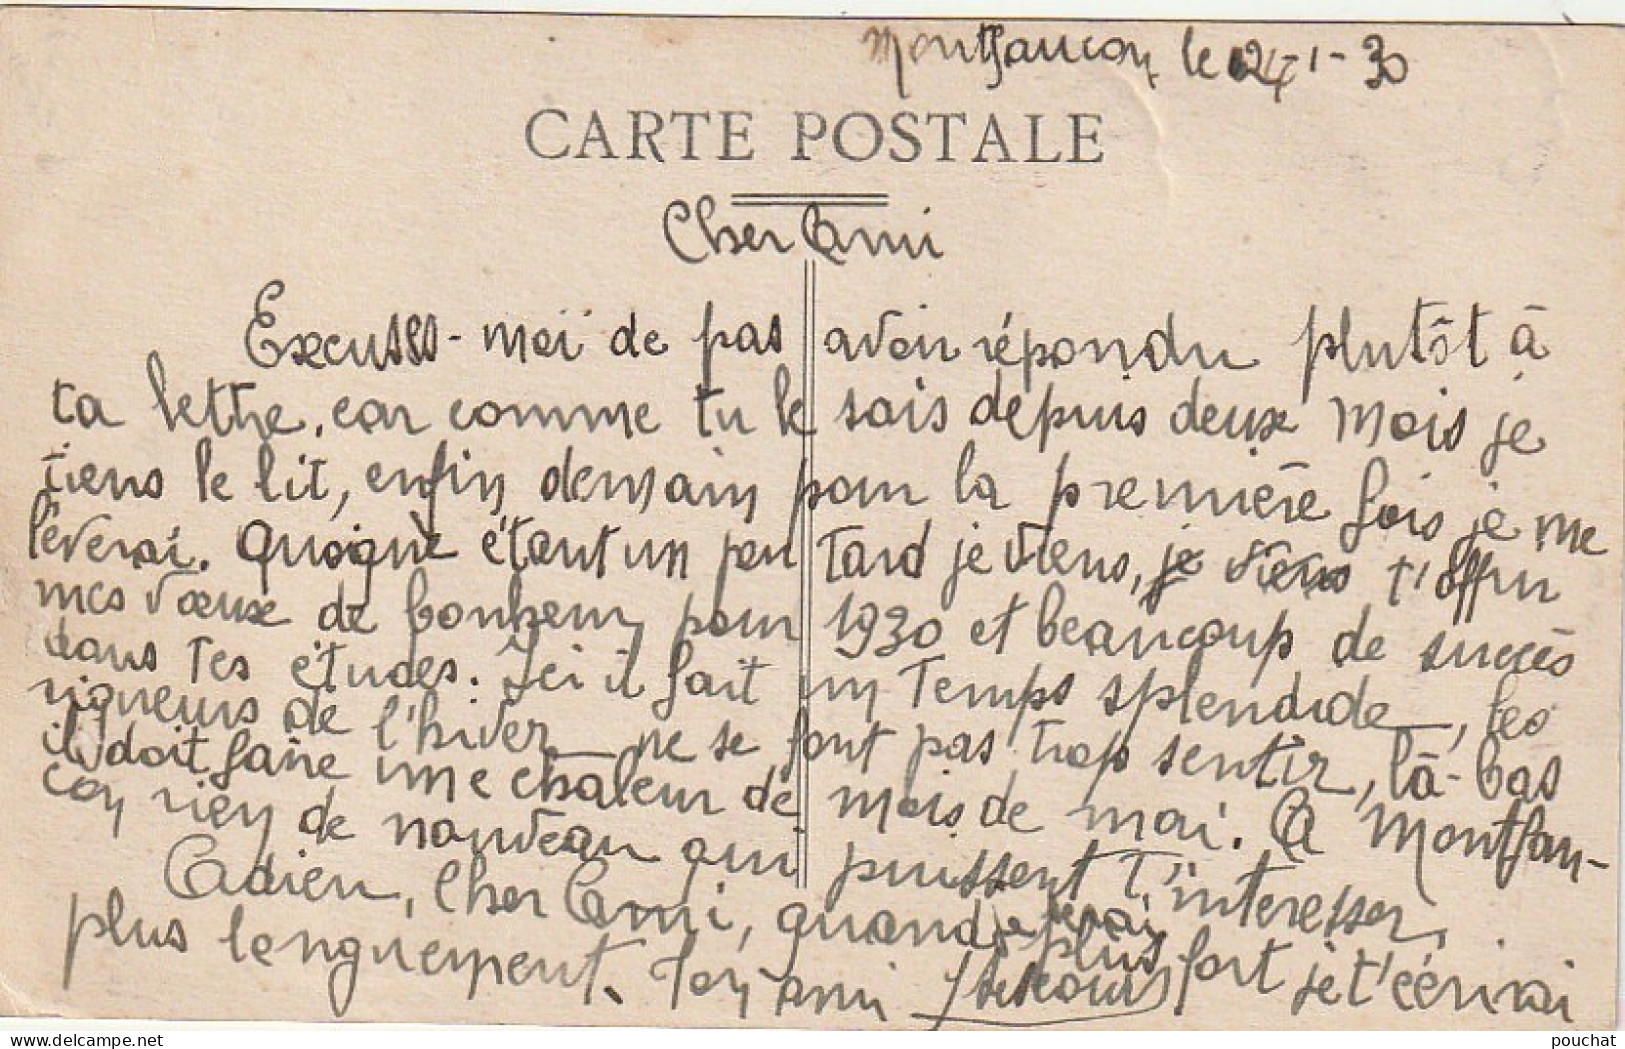 Montfaucon, le 24-1-30
CARTE POSTALE
Cher Ami
Excuses-moi de pas avoir répondu plutôt à
ta lettre, car comme tu le sais depuis deux mois je
tiens le lit, enfin demain pour la première fois je me
lèverai. Quoique étant un peu tard je viens, je viens t'offrir
mes vœux de bonheur pour 1930 et beaucoup de succès
dans tes études. Ici il fait un temps splendide, les
rigueurs de l'hiver ne se font pas trop sentir, là-bas
il doit faire une chaleur de mois de mai. A Montfau-
con rien de nouveau qui puissent t'interesser.
Adieu, cher Ami, quand je serai plus fort je t'écrirai
plus longuement. Ton ami
delcampe.net
pouchat